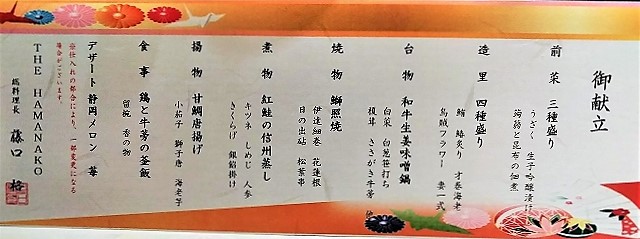 御献立
前菜 三種盛り
うざく 生子吟醸漬け
蒟蒻と昆布の佃煮
造里 四種盛り
鮪 鰆炙り 才巻海老
烏賊フラワー 妻一式
台物 和牛生姜味噌鍋
白菜 白葱笹打ち
榎茸 ささがき牛蒡
焼物 鰤照焼
伊達細巻 花蓮根
日の出砧 松葉串
煮物 紅鮭の信州蒸し
キツネ しめじ 人参
きくらげ 銀餡掛け
揚物 甘鯛唐揚げ
小茄子 獅子唐 海老芋
食事 鶏と牛蒡の釜飯
留椀 香の物
デザート 静岡メロン 苺
※仕入れの都合により、一部変更になる
場合がございます。
THE HAMANAKO
総料理長 藤口 格